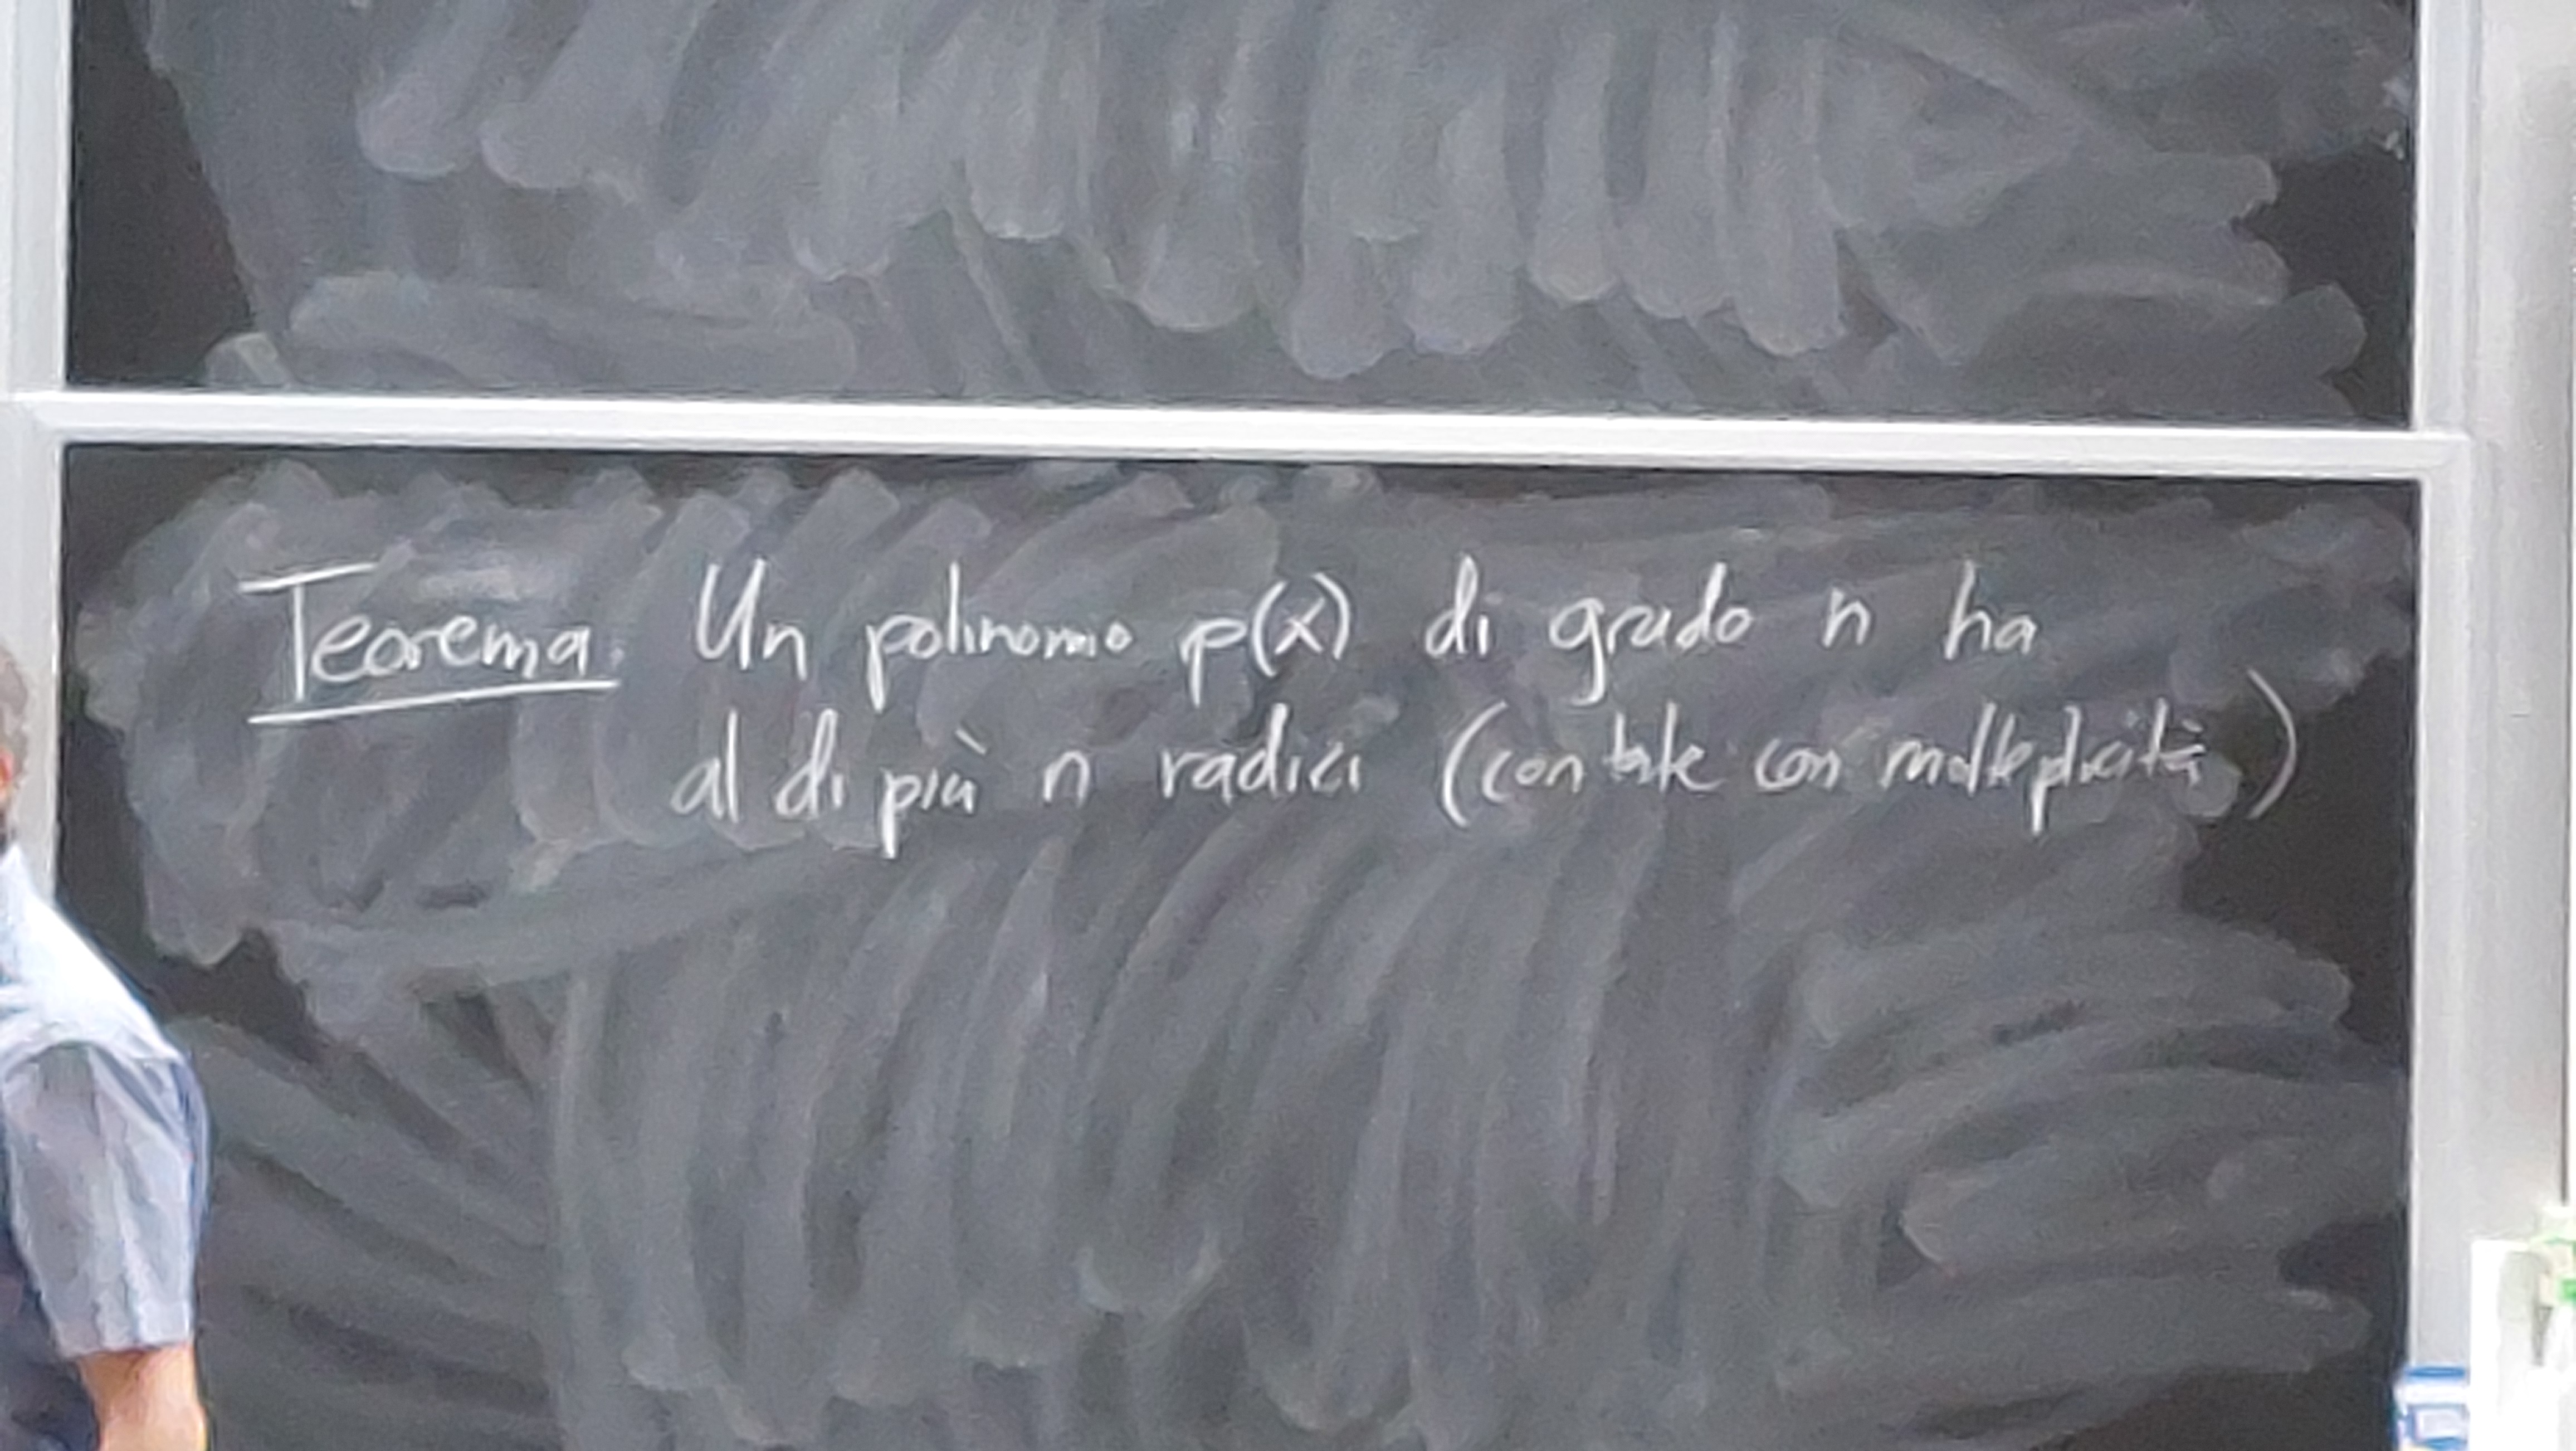 Teorema. Un polinomio p(x) di grado n ha
al di più n radici (contate con molteplicità)